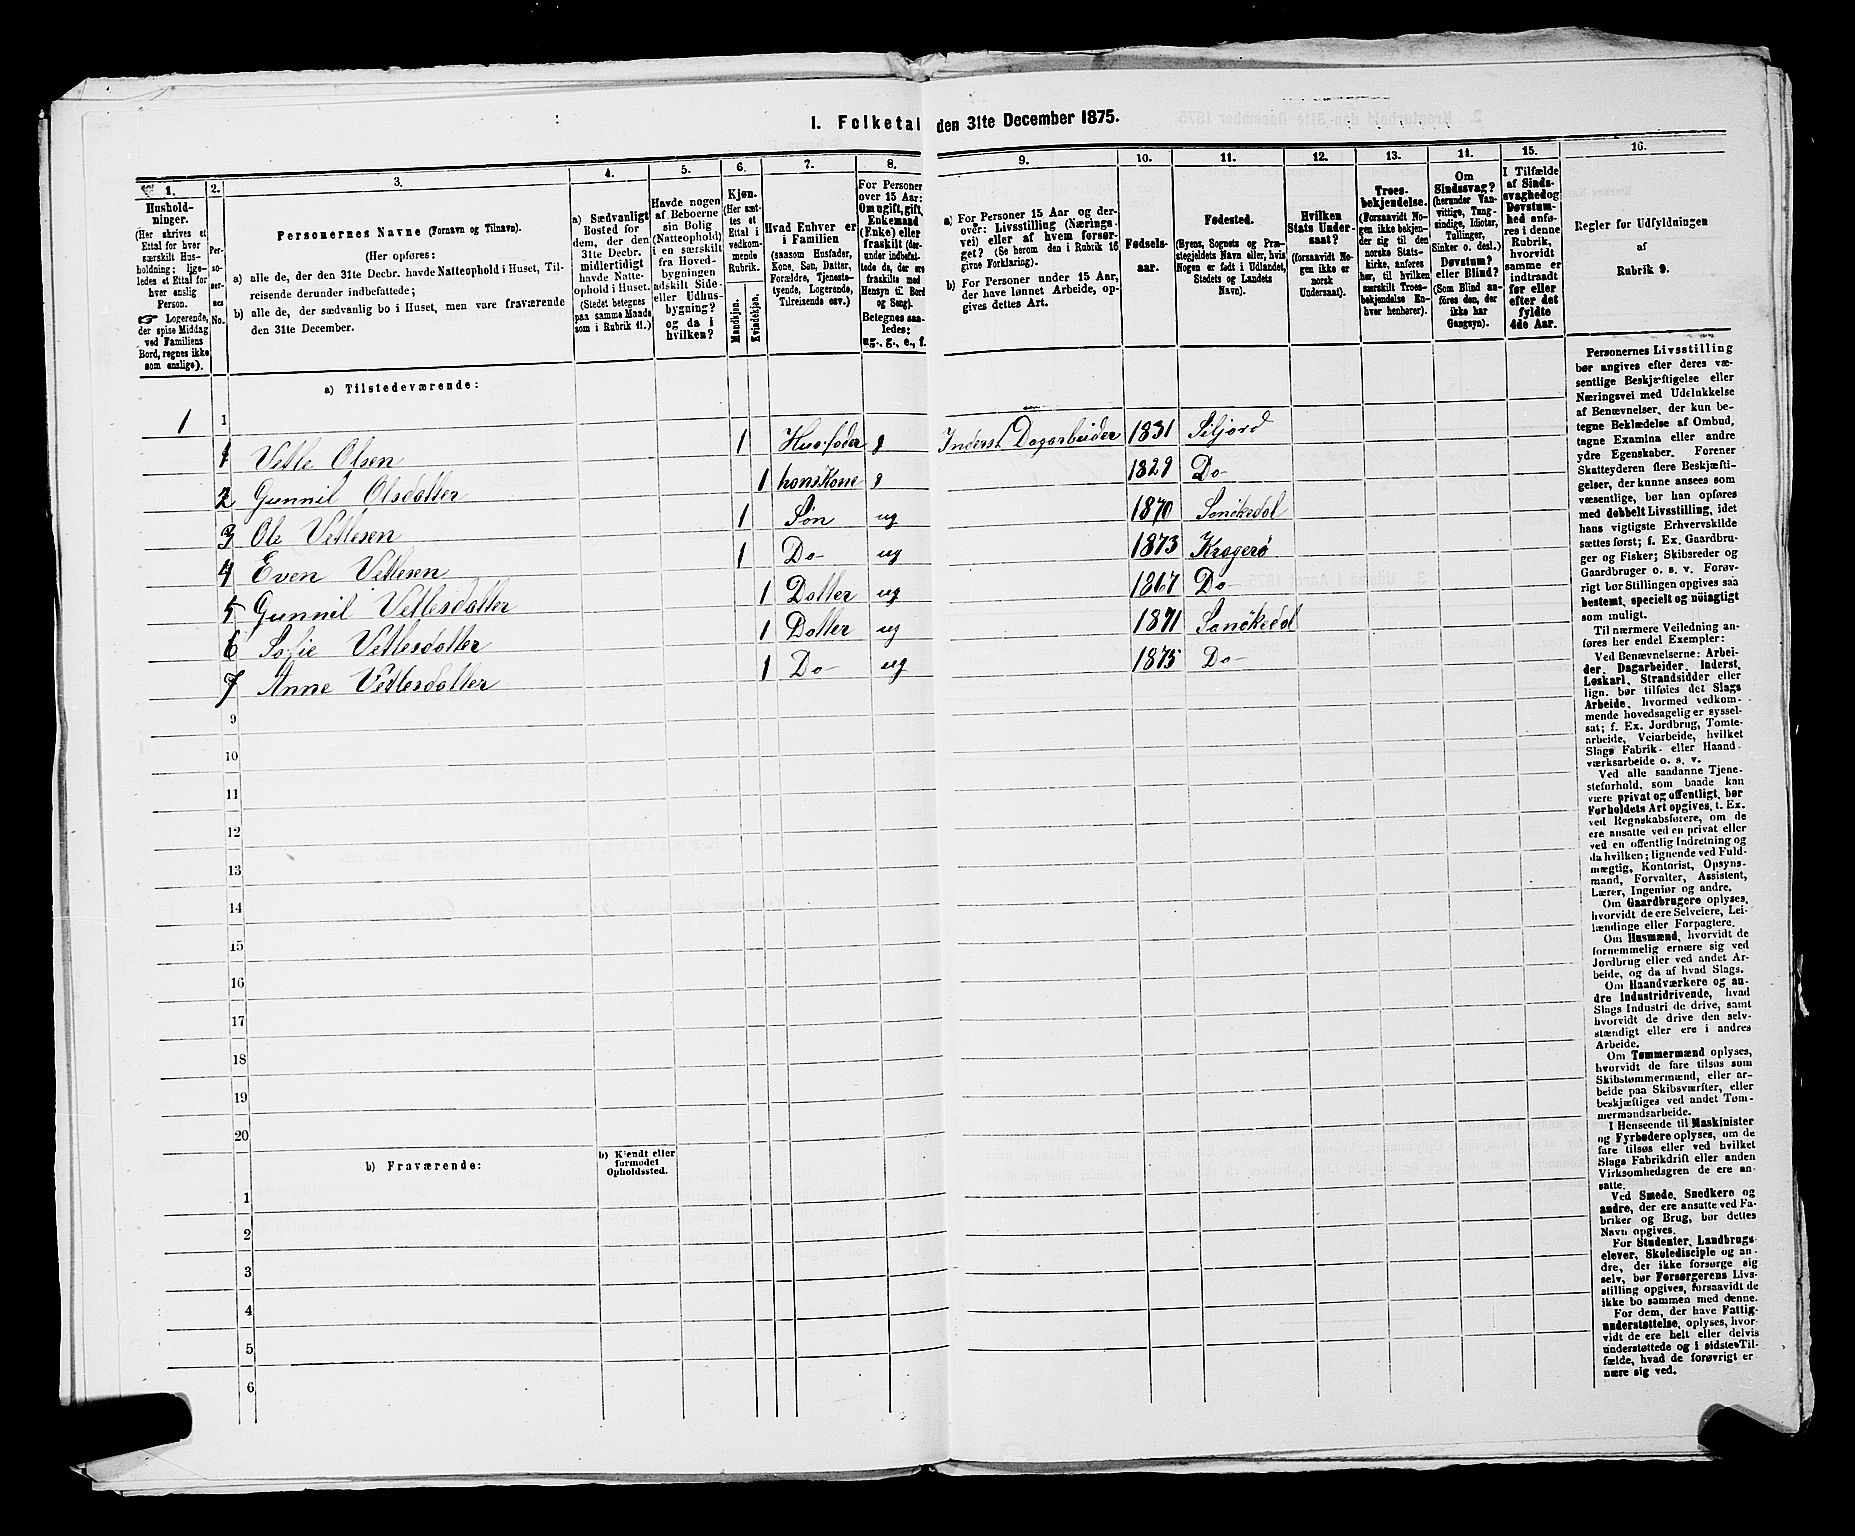 I. Folketal den 31te December 1875.
1. 2. 3. 4. 5. 6. 7. 8. 9. 10. 11. 12. 13. 14. 15. 16.
Husholdninger.
(Her skrives et
Ettal for hver
særskilt Husholdning;
ligeledes et Ettal for
hver enslig
Person.
☞ Logerende,
der spise Middag
ved Familiens
Bord, regnes ikke
som enslige).
Personernes No.
Personernes Navne (Fornavn og Tilnavn).
(Her opføres:
a) alle de, der den 31te Decbr. havde Natteophold i Huset, Tilreisende derunder indbefattede;
b) alle de, der sædvanlig bo i Huset, men vare fraværende
den 31te December.
a) Sædvanligt
Bosted for
dem, der den
31te Decbr.
midlertidigt
havde Natteophold i Huset.
(Stedet betegnes
paa samme Maade
som i Rubrik 11.)
Havde nogen
af Beboerne
sin Bolig
(Natteophold)
i en særskilt
fra Hovedbygningen
adskilt Side-
eller Udhusbygning?
og da i
hvilken?
Kjøn.
(Her sættes et
Ettal i
vedkommende
Rubrik.
Mandkjøn.
Kvindekjøn.
Hvad Enhver er
i Familien
(saasom Husfader,
Kone, Søn, Datter,
Forældre, Tjenestetyende, Logerende,
Tilreisende osv.)
For Personer
over 15 Aar:
Om ugift, gift,
Enkemand
(Enke) eller
fraskilt (derunder indbefattede de, der ere
fraskilte med
Hensyn til Bord
og Seng).
Betegnes saaledes:
ug., g., e., f.
a) For Personer 15 Aar og derover: Livsstilling (Næringsvei) eller af hvem forsørget? (Se herom den i Rubrik 16
givne Forklaring).
b) For Personer under 15 Aar,
der have lønnet Arbeide, opgives dettes Art.
Fødselsaar.
Fødested.
(Byens, Sognets og Præstegjeldets Navn eller, hvis
Nogen er født i Udlandet,
Stedets og Landets
Navn).
Hvilken
Stats Undersaat?
(forsaavidt Nogen ikke er
norsk
Undersaat).
Troesbekjendelse.
(Forsaavidt Nogen ikke bekjender sig til den
norske Statskirke, anføres
her, til hvilken
særskilt Troesbekjendelse Enhver henhører).
Om
Sindssvag?
(herunder Vanvittige, Tungsindige, Idioter,
Tullinger,
Sinker o. desl.)
Døvstum?
eller Blind?
(Som Blind anføres den, der
ikke har
Gangsyn).
I Tilfælde
af Sindssvaghed og
Døvstumhed anføres i denne
Rubrik,
hvorvidt
samme er
indtraadt
før eller
efter det
fyldte
4de Aar.
Regler for Udfyldningen
af
Rubrik 9.
a) Tilstedeværende:
1 1
1 Vetle Olsen 1 Husfader g Inderst Dagarbeider 1831 Siljord
2 Gunnil Olsdatter 1 hans Kone g 1829 Do
3 Ole Vetlesen 1 Søn ug 1870 Sanökedal
4 Even Vetlesen 1 Do ug 1873 Kragerø
5 Gunnil Vetlesdatter 1 Datter ug 1867 Do
6 Sofie Vetlesdatter 1 Datter ug 1871 Sanökedal
7 Anne Vetlesdatter 1 Do ug 1875 Do
9
10
11
12
13
14
15
16
17
18
19
20
b) Fraværende:
b) Kjendt eller
formodet
Opholdssted.
1
2
3
4
5
6
Personernes Livsstilling
bør angives efter deres væsentlige Beskjæftigelse eller
Næringsvei med Udelukkelse
af Benævnelser, der kun betegne Beklædelse af Ombud,
tagne Examina eller andre
ydre Egenskaber. Forener
Skatteyderen flere Beskjæftigelser, der kunne ansees som
væsentlige, bør han opføres
med dobbelt Livsstilling, idet
hans vigtigste Erhvervskilde
sættes først; f. Ex. Gaardbruger og Fisker; Skibsreder og
Gaardbruger o. s. v. Forøvrigt bør Stillingen opgives saa
bestemt, specielt og nöiagtigt
som muligt.
Til nærmere Veiledning anføres her endel Exempler:
Ved Benævnelserne: Arbeider, Dagarbeider, Inderst,
Løskarl, Strandsidder eller
lign. bør tilføies det Slags
Arbeide, hvormed vedkommende hovedsagelig er sysselsat; f. Ex. Jordbrug, Tomtearbeide, Veiarbeide, hvilket
Slags Fabrik- eller Haandværksarbeide o. s. v.
Ved alle saadanne Tjenesteforhold, som baade kan
være privat og offentligt, bør
Forholdets Art opgives, t. Ex.
ved Regnskabsførere, om de
ere ansatte ved en privat eller
ved en offentlig Indretning og
da hvilken; lignende ved Fuldmægtig, Kontorist, Opsynsmand, Forvalter, Assistent,
Lærer, Ingeniør og andre.
Om Gaardbrugere oplyses,
hvorvidt de ere Selveiere, Leilændinge eller Forpagtere.
Om Husmænd, hvorvidt de
fornemmelig ernære sig ved
Jordbrug eller ved andet Arbeide, og da af hvad Slags.
Om Haandværkere og andre Industridrivende, hvad
Slags Industri de drive, samt
hvorvidt de drive den selvstændigt eller ere i andres
Arbeide.
Om Tømmermænd oplyses,
hvorvidt de fare tilsøs som
Skibstømmermænd, eller arbeide paa Skibsværfter, eller
beskjæftiges ved andet Tømmermandsarbeide.
I Henseende til Maskinister
og Fyrbødere oplyses, om de
fare tilsøs eller ved hvilket
Slags Fabrikdrift eller anden
Virksomhedsgren de ere ansatte.
Ved Smede, Snedkere og
andre, der ere ansatte ved Fabriker og Brug, bør dettes
Navn opgives.
For Studenter, Landbrugselever, Skoledisciple og andre, der ikke forsørge sig
selv, bør Forsørgerens Livsstilling opgives, forsaavidt de
ikke bo sammen med denne.
For dem, der have Fattigunderstøttelse, oplyses, hvorvidt de ere helt eller delvis
understøttede og i sidste Tilfælde, hvad de forøvrigt ernære sig ved.